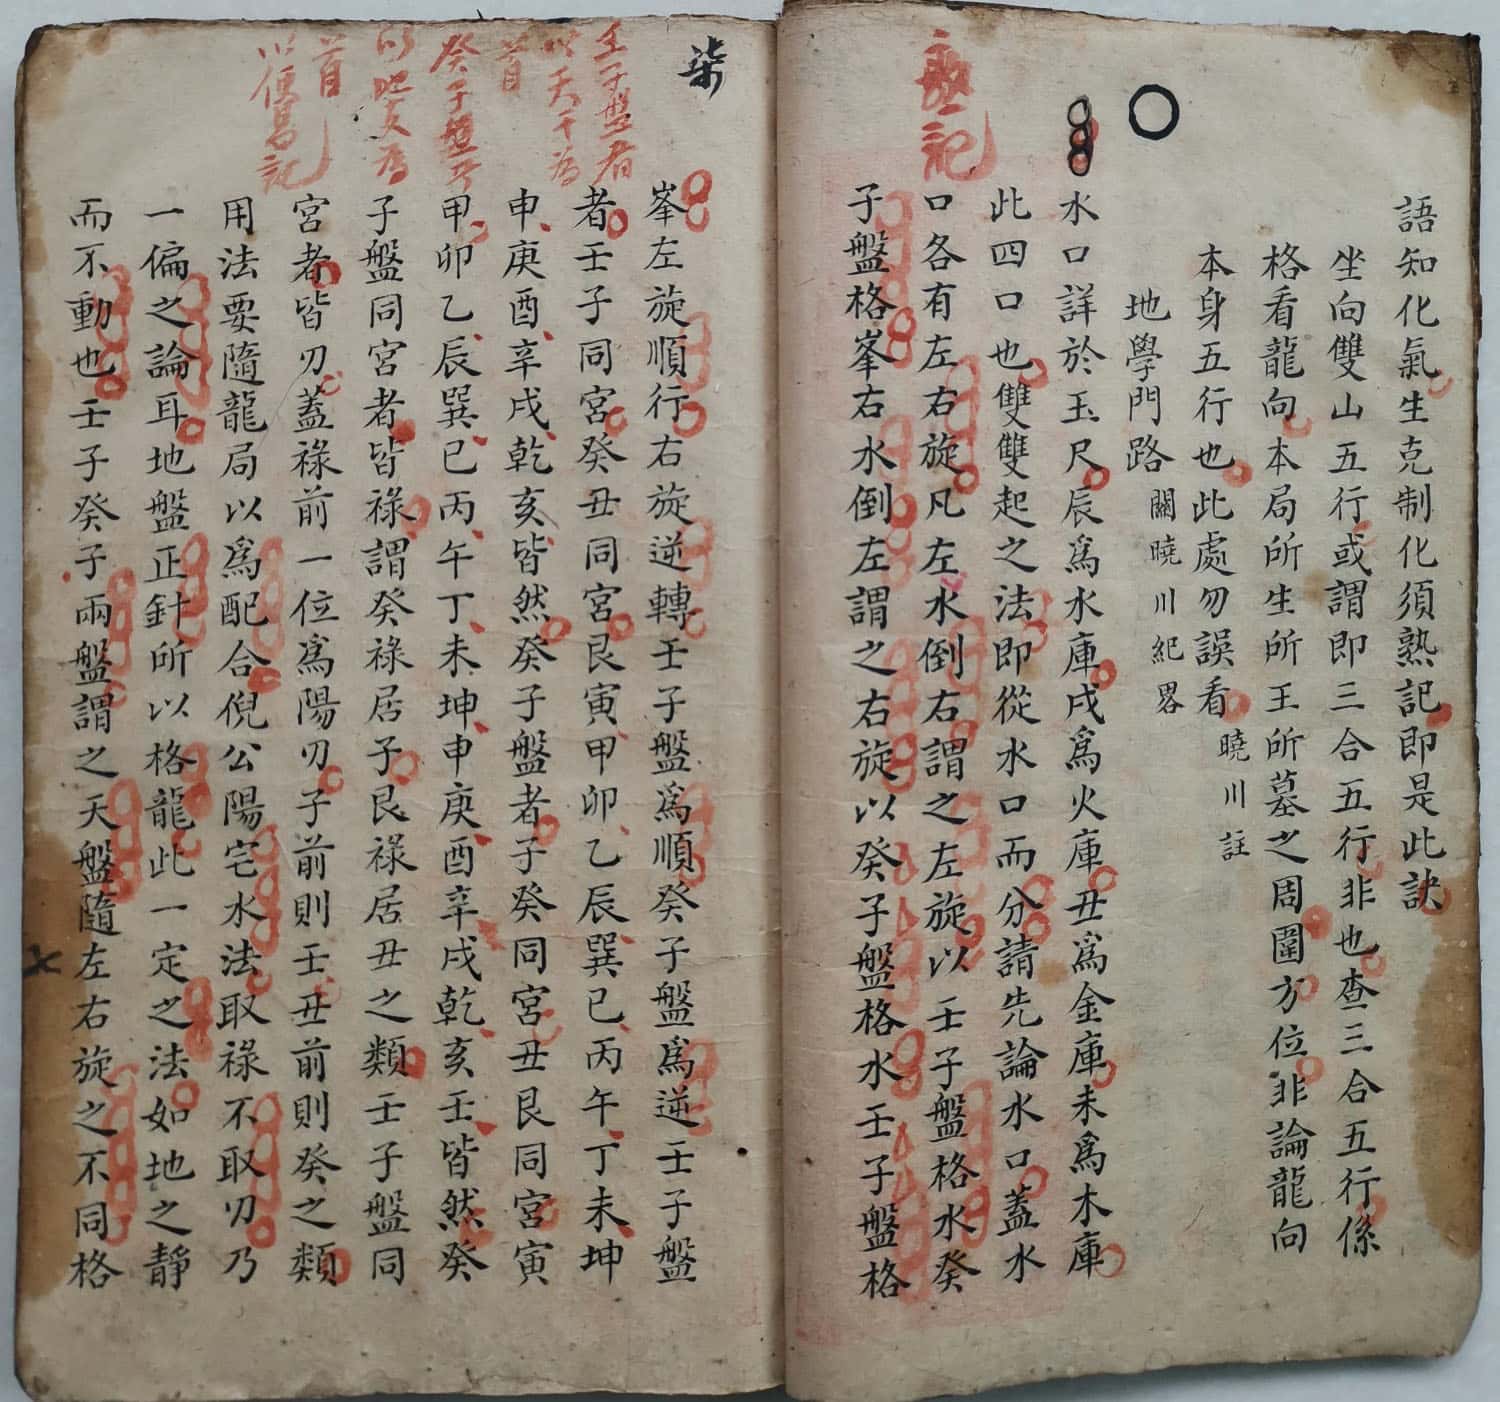 語知化氣生克制化須熟記即是此訣
坐向雙山五行或謂即三合五行非也查三合五行係
格看龍向本局所生所王所墓之周圍方位非論龍向
本身五行也此處勿誤看 曉川註
地學門路 關曉川紀畧
水口詳於玉尺辰為水庫戌為火庫丑為金庫未為木庫
此四口也雙雙起之法即從水口而分請先論水口蓋水
口各有左右旋凡左水倒右謂之左旋以壬子盤格水癸
子盤格峯右水倒左謂之右旋以癸子盤格水壬子盤格
熟記
柒
峯左旋順行右旋逆轉壬子盤為順癸子盤為逆壬子盤
者壬子同宮癸丑同宮艮寅甲卯乙辰巽巳丙午丁未坤
申庚酉辛戌乾亥皆然癸子盤者子癸同宮丑艮同宮寅
甲卯乙辰巽巳丙午丁未坤申庚酉辛戌乾亥壬皆然癸
子盤同宮者皆祿謂癸祿居子艮祿居丑之類壬子盤同
宮者皆刃蓋祿前一位為陽刃子前則壬丑前則癸之類
用法要隨龍局以為配合倪公陽宅水法取祿不取刃乃
一偏之論耳地盤正針所以格龍此一定之法如地之靜
而不動也壬子癸子兩盤謂之天盤隨左右旋之不同格
壬子盤者
以天干為
首
癸子盤者
以地支為
首
以便易記